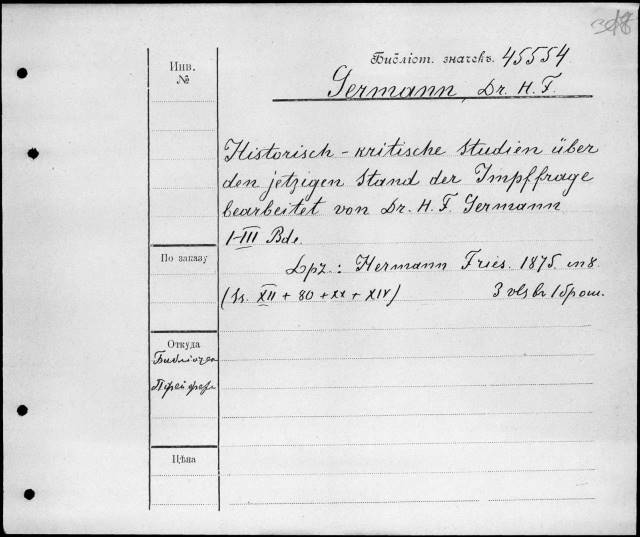 Инв.
№
Библіот. значекъ. 45554
Germann, Dr. H. F.
Historisch-kritische Studien über
den jetzigen Stand der Impffrage
bearbeitet von Dr. H. F. Germann
I-III Bde.
По заказу
Lpz.: Hermann Fries. 1875. in 8.
(Ss. XII + 80 + XX + XIV) 3 vls въ 1 брош.
Откуда
Библіотека
Цѣна